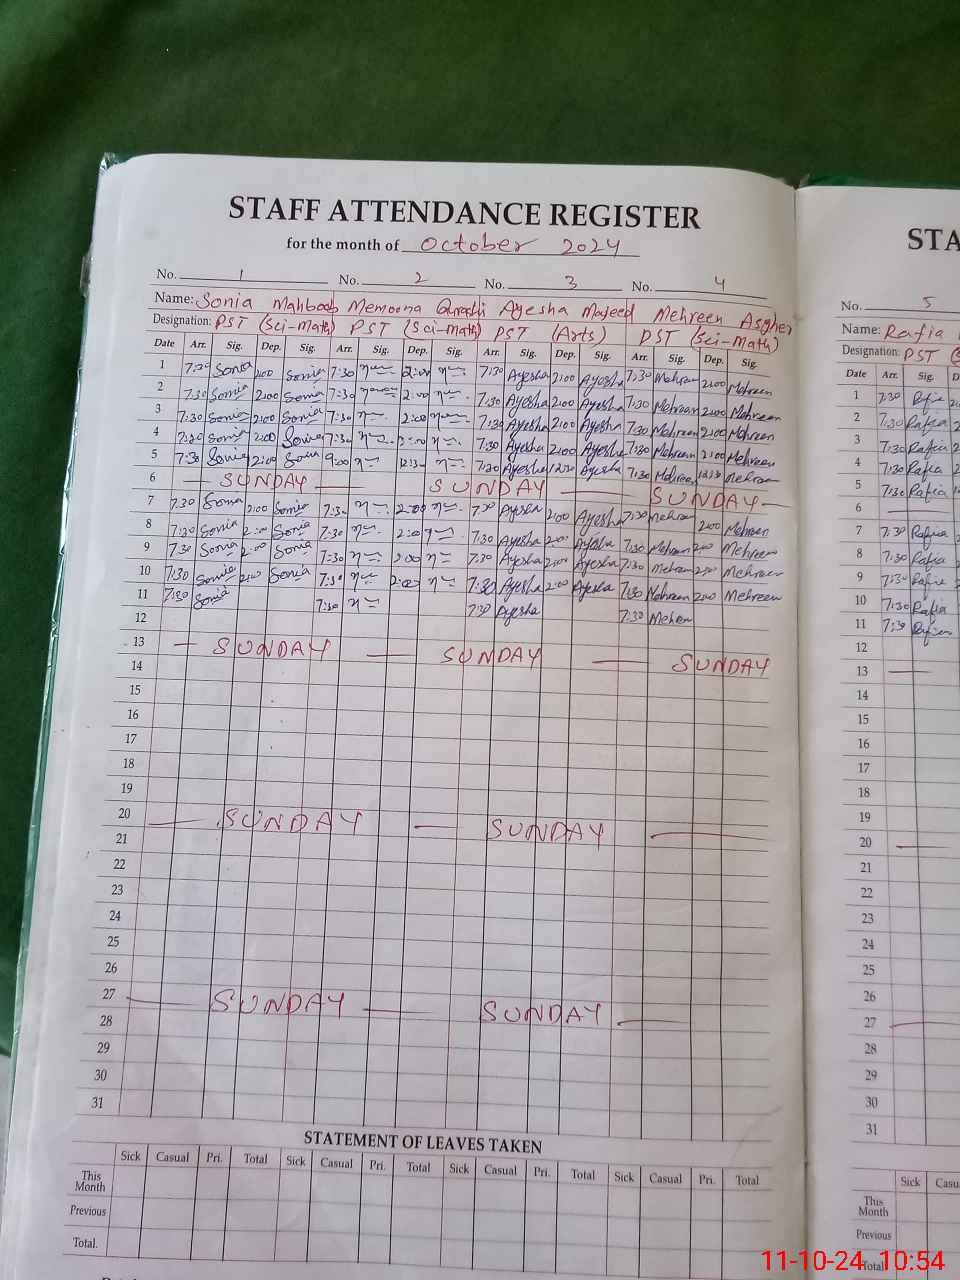 STAFF ATTENDANCE REGISTER
for the month of October 2024
No. 1 No. 2 No. 3 No. 4
Name: Sonia Mahboob Memoona Qurashi Ayesha Majeed Mehreen Asgher
Designation: PST (Sci-Math) PST (Sci-math) PST (Arts) PST (Sci-Math)
Date Arr. Sig. Dep. Sig. Arr. Sig. Dep. Sig. Arr. Sig. Dep. Sig. Arr. Sig. Dep. Sig.
1 7:30 Sonia 2:00 Sonia 7:30 2:00 7:30 Ayesha 2:00 Ayesha 7:30 Mehreen 2:00 Mehreen
2 7:30 Sonia 2:00 Sonia 7:30 2:00 7:30 Ayesha 2:00 Ayesha 7:30 Mehreen 2:00 Mehreen
3 7:30 Sonia 2:00 Sonia 7:30 2:00 7:30 Ayesha 2:00 Ayesha 7:30 Mehreen 2:00 Mehreen
4 7:30 Sonia 2:00 Sonia 7:30 2:00 7:30 Ayesha 2:00 Ayesha 7:30 Mehreen 2:00 Mehreen
5 7:30 Sonia 2:00 Sonia 9:00 12:30 7:30 Ayesha 12:30 Ayesha 7:30 Mehreen 12:30 Mehreen
6 SUNDAY SUNDAY SUNDAY
7 7:30 Sonia 2:00 Sonia 7:30 2:00 7:30 Ayesha 2:00 Ayesha 7:30 Mehreen 2:00 Mehreen
8 7:30 Sonia 2:00 Sonia 7:30 2:00 7:30 Ayesha 2:00 Ayesha 7:30 Mehreen 2:00 Mehreen
9 7:30 Sonia 2:00 Sonia 7:30 2:00 7:30 Ayesha 2:00 Ayesha 7:30 Mehreen 2:00 Mehreen
10 7:30 Sonia 2:00 Sonia 7:30 2:00 7:30 Ayesha 2:00 Ayesha 7:30 Mehreen 2:00 Mehreen
11 7:30 Sonia 7:30 7:30 Ayesha 7:30 Mehren
12
13 SUNDAY SUNDAY SUNDAY
14
15
16
17
18
19
20 SUNDAY SUNDAY
21
22
23
24
25
26
27 SUNDAY SUNDAY
28
29
30
31
STATEMENT OF LEAVES TAKEN
Sick Casual Pri. Total Sick Casual Pri. Total Sick Casual Pri. Total Sick Casual Pri. Total
This Month
Previous
Total.
STA
No. 5
Name: Rafia
Designation: PST
Date Arr. Sig.
1 7:30 Rafia
2 7:30 Rafia
3 7:30 Rafia
4 7:30 Rafia
5 7:30 Rafia
6
7 7:30 Rafia
8 7:30 Rafia
9 7:30 Rafia
10 7:30 Rafia
11 7:30 Rafia
12
13
14
15
16
17
18
19
20
21
22
23
24
25
26
27
28
29
30
31
Sick
This Month
Previous
Total
11-10-24 10:54